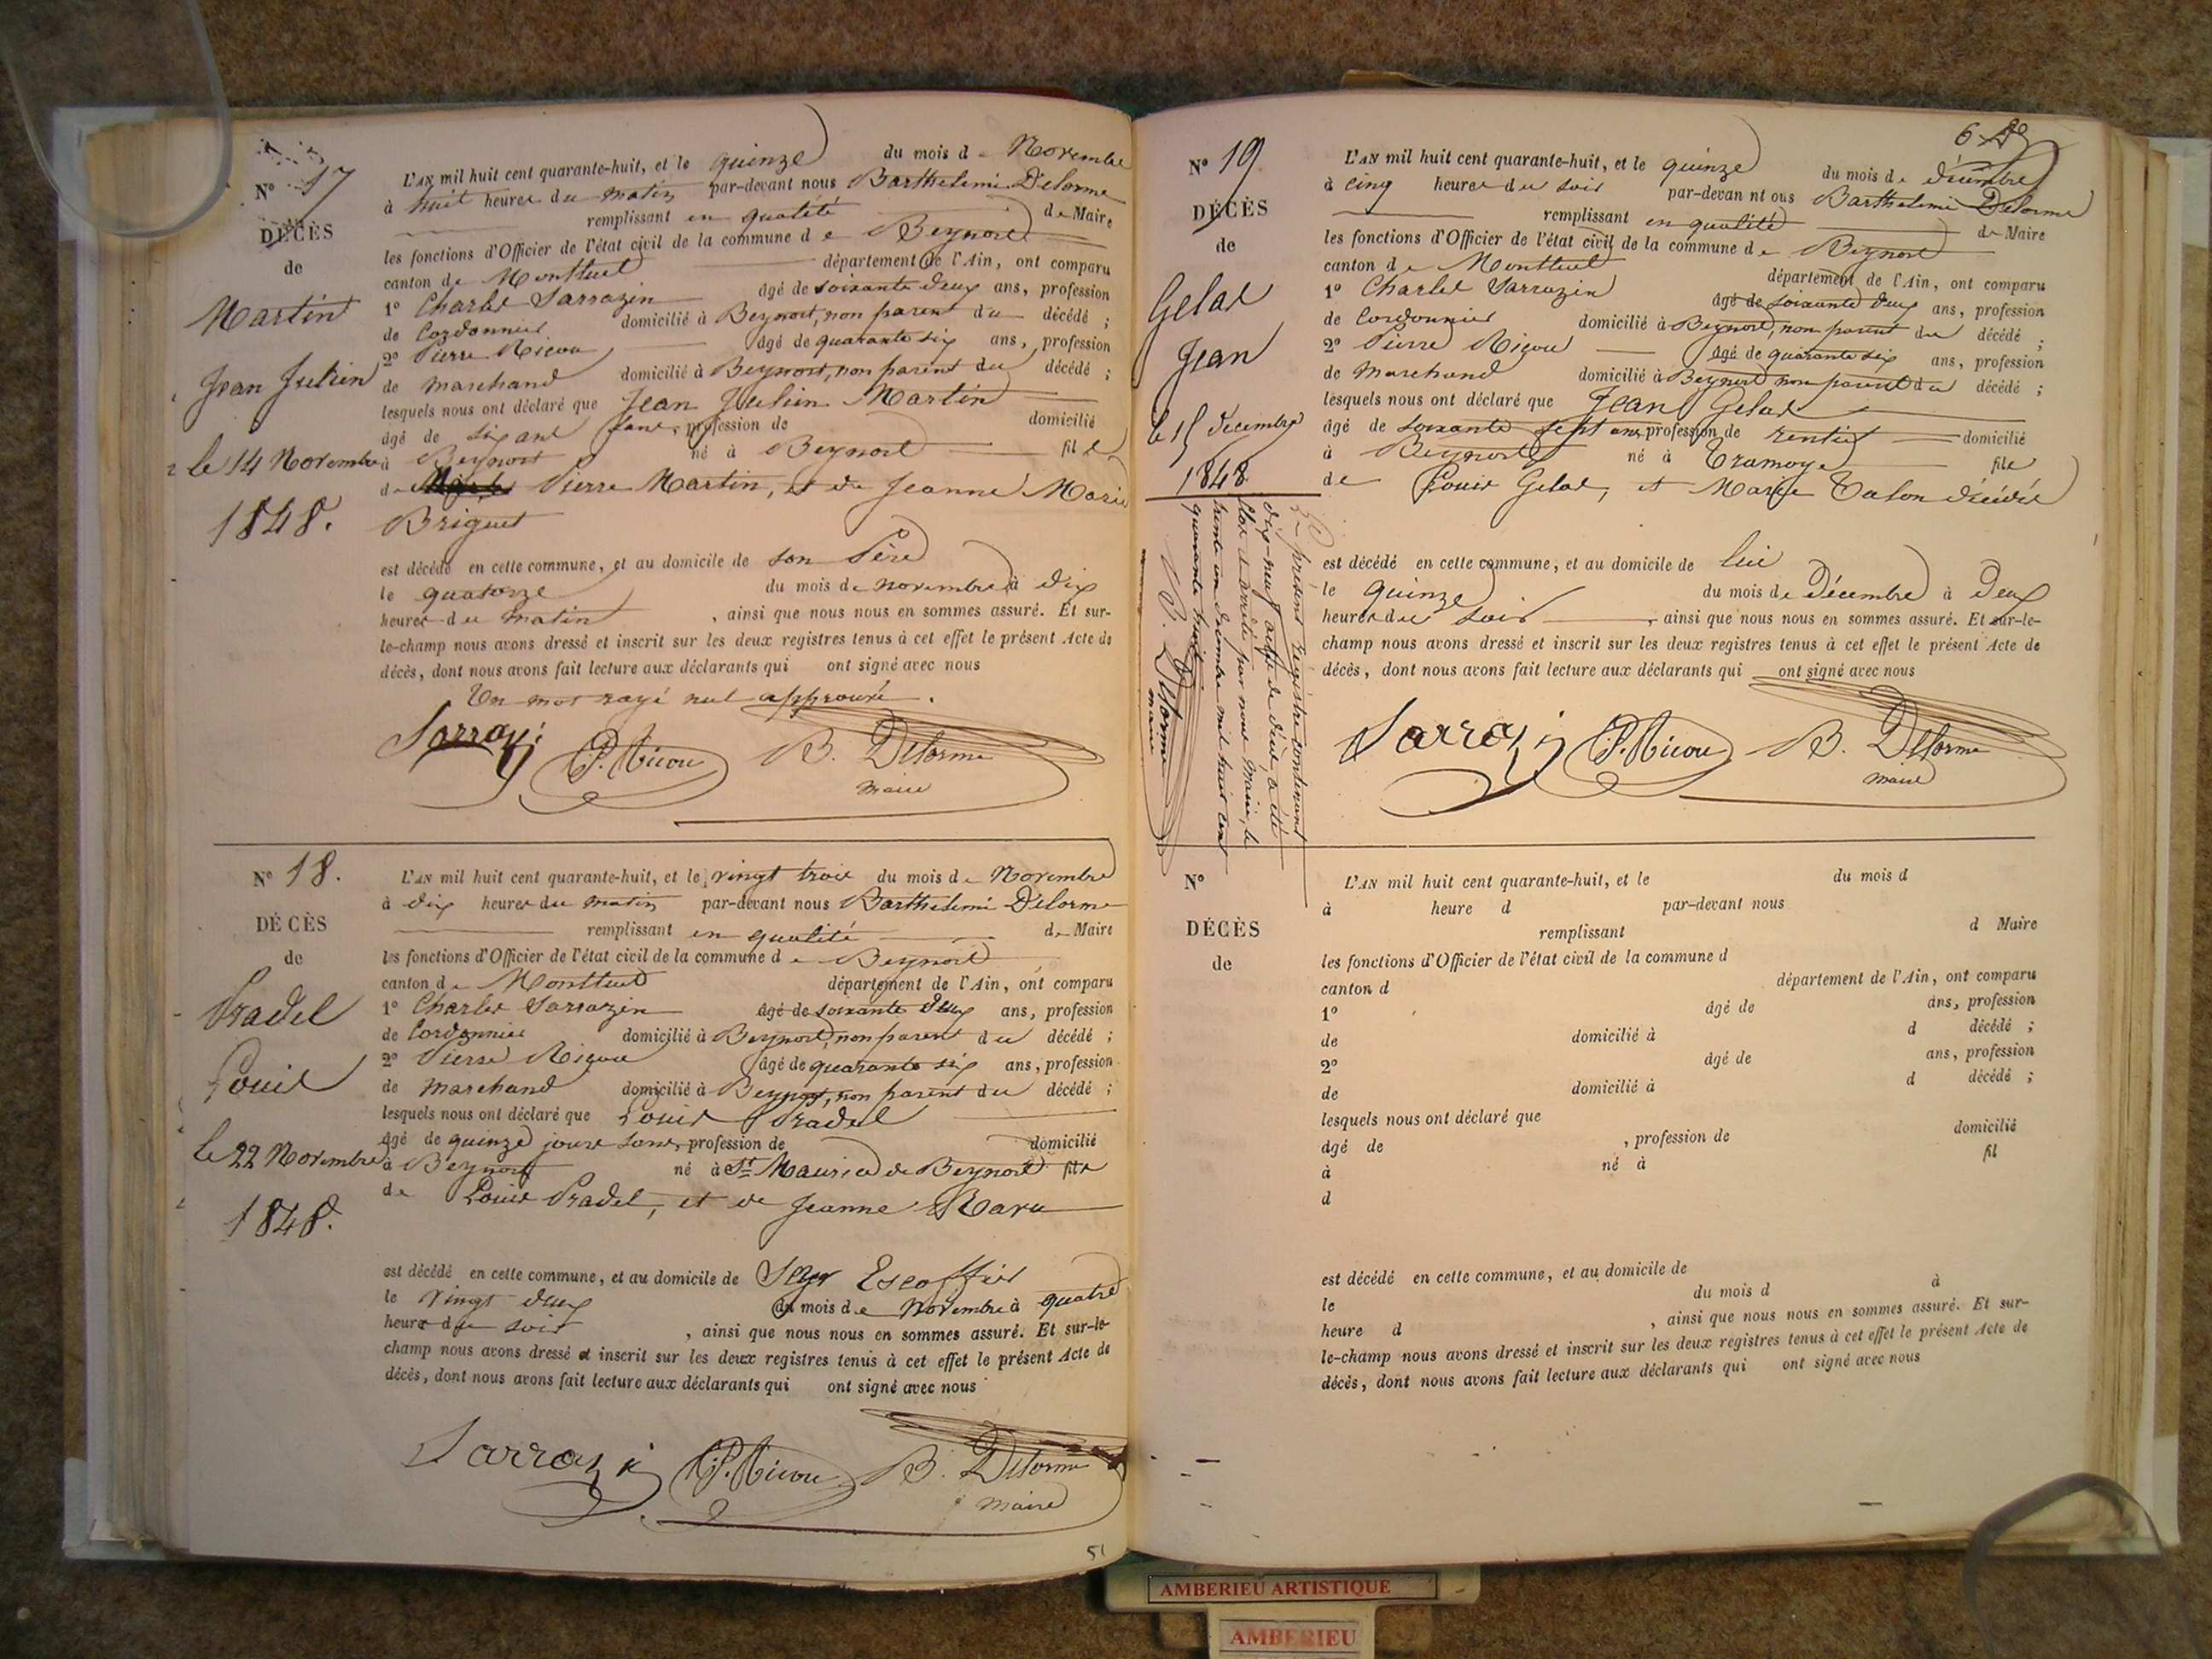 N° 17
DÉCÈS
de
Martin
Jean Julien
le 14 Novembre
1848.
L'AN mil huit cent quarante-huit, et le quinze du mois de Novembre
à huit heures du matin par-devant nous Barthelemi Delorme
remplissant en qualité de Maire
les fonctions d'Officier de l'état civil de la commune de Beynost
canton de Montluel département de l'Ain, ont comparu
1° Charles Sarrazin âgé de soixante deux ans, profession
de Cordonnier domicilié à Beynost, non parent du décédé ;
2° Pierre Nicou âgé de quarante six ans, profession
de marchand domicilié à Beynost, non parent du décédé ;
lesquels nous ont déclaré que Jean Julien Martin
âgé de six ans sans, profession de domicilié
à Beynost né à Beynost fils
de Pierre Martin, et de Jeanne Marie
Briguet
est décédé en cette commune, et au domicile de son Père
le quatorze du mois de novembre à dix
heures du matin , ainsi que nous nous en sommes assuré. Et sur-
le-champ nous avons dressé et inscrit sur les deux registres tenus à cet effet le présent Acte de
décès, dont nous avons fait lecture aux déclarants qui ont signé avec nous
Un mot rayé nul approuvé.
Sarrazin P. Nicou B. Delorme
maire
N° 18.
DÉCÈS
de
Pradel
Louis
le 22 Novembre
1848.
L'AN mil huit cent quarante-huit, et le vingt trois du mois de Novembre
à dix heures du matin par-devant nous Barthelemi Delorme
remplissant en qualité de Maire
les fonctions d'Officier de l'état civil de la commune de Beynost
canton de Montluel département de l'Ain, ont comparu
1° Charles Sarrazin âgé de soixante deux ans, profession
de Cordonnier domicilié à Beynost, non parent du décédé ;
2° Pierre Nicou âgé de quarante six ans, profession
de marchand domicilié à Beynost, non parent du décédé ;
lesquels nous ont déclaré que Louis Pradel
âgé de quinze jours sans, profession de domicilié
à Beynost né à St Maurice de Beynost fils
de Louis Pradel, et de Jeanne
est décédé en cette commune, et au domicile de Escoffier
le vingt deux du mois de novembre à quatre
heures du soir , ainsi que nous nous en sommes assuré. Et sur-le-
champ nous avons dressé et inscrit sur les deux registres tenus à cet effet le présent Acte de
décès, dont nous avons fait lecture aux déclarants qui ont signé avec nous
Sarrazin P. Nicou B. Delorme
maire
51
N° 19
DÉCÈS
de
Gelas
Jean
le 15 décembre
1848
L'AN mil huit cent quarante-huit, et le quinze du mois de décembre
à cinq heures du soir par-devan nt ous Barthelemi Delorme
remplissant en qualité de Maire
les fonctions d'Officier de l'état civil de la commune de Beynost
canton de Montluel département de l'Ain, ont comparu
1° Charles Sarrazin âgé de soixante deux ans, profession
de Cordonnier domicilié à Beynost, non parent du décédé ;
2° Pierre Nicou âgé de quarante six ans, profession
de Marchand domicilié à Beynost non parent du décédé ;
lesquels nous ont déclaré que Jean Gelas
âgé de soixante sept ans, profession de rentier domicilié
à Beynost né à Tramoye fils
de Louis Gelas, et Marie Talon décédés
est décédé en cette commune, et au domicile de lui
le quinze du mois de Décembre à deux
heures du soir , ainsi que nous nous en sommes assuré. Et sur-le-
champ nous avons dressé et inscrit sur les deux registres tenus à cet effet le présent Acte de
décès, dont nous avons fait lecture aux déclarants qui ont signé avec nous
Sarrazin P. Nicou B. Delorme
maire
Le présent registre contenant
dix-neuf actes de décès, a été
clos et arrêté par nous Maire, le
trente un décembre mil huit cent
quarante huit
B. Delorme
maire
N°
DÉCÈS
de
L'AN mil huit cent quarante-huit, et le du mois d
à heure d par-devant nous
remplissant d Maire
les fonctions d'Officier de l'état civil de la commune d
canton d département de l'Ain, ont comparu
1° âgé de ans, profession
de domicilié à d décédé ;
2° âgé de ans, profession
de domicilié à d décédé ;
lesquels nous ont déclaré que
âgé de , profession de domicilié
à né à fil
d
est décédé en cette commune, et au domicile de
le du mois d à
heure d , ainsi que nous nous en sommes assuré. Et sur-
le-champ nous avons dressé et inscrit sur les deux registres tenus à cet effet le présent Acte de
décès, dont nous avons fait lecture aux déclarants qui ont signé avec nous
AMBERIEU ARTISTIQUE
AMBERIEU